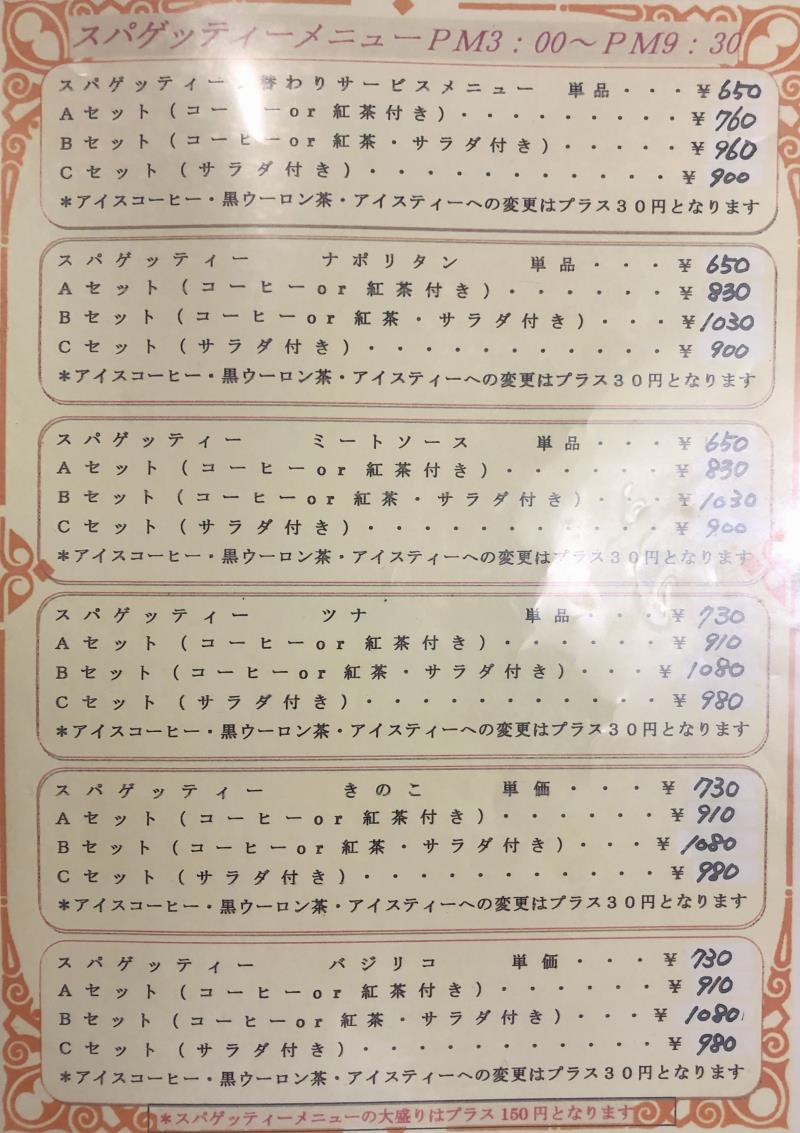 スパゲッティーメニューPM3：00～PM9：30
スパゲッティー 替わりサービスメニュー 単品・・・¥650
Aセット(コーヒーor紅茶付き)・・・・・・・・・¥760
Bセット(コーヒーor紅茶・サラダ付き)・・・・・¥960
Cセット(サラダ付き)・・・・・・・・・・・・¥900
*アイスコーヒー・黒ウーロン茶・アイスティーへの変更はプラス30円となります
スパゲッティー ナポリタン 単品・・・¥650
Aセット(コーヒーor紅茶付き)・・・・・・¥830
Bセット(コーヒーor紅茶・サラダ付き)・・・¥1030
Cセット(サラダ付き)・・・・・・・・・・・¥900
*アイスコーヒー・黒ウーロン茶・アイスティーへの変更はプラス30円となります
スパゲッティー ミートソース 単品・・・¥650
Aセット(コーヒーor紅茶付き)・・・・・・¥830
Bセット(コーヒーor紅茶・サラダ付き)・・・¥1030
Cセット(サラダ付き)・・・・・・・・・・・¥900
*アイスコーヒー・黒ウーロン茶・アイスティーへの変更はプラス30円となります
スパゲッティー ツナ 単品・・・¥730
Aセット(コーヒーor紅茶付き)・・・・・・¥910
Bセット(コーヒーor紅茶・サラダ付き)・・・¥1080
Cセット(サラダ付き)・・・・・・・・・・・¥980
*アイスコーヒー・黒ウーロン茶・アイスティーへの変更はプラス30円となります
スパゲッティー きのこ 単価・・・¥730
Aセット(コーヒーor紅茶付き)・・・・・・¥910
Bセット(コーヒーor紅茶・サラダ付き)・・・¥1080
Cセット(サラダ付き)・・・・・・・・・・・¥980
*アイスコーヒー・黒ウーロン茶・アイスティーへの変更はプラス30円となります
スパゲッティー バジリコ 単価・・・¥730
Aセット(コーヒーor紅茶付き)・・・・・・¥910
Bセット(コーヒーor紅茶・サラダ付き)・・・¥1080
Cセット(サラダ付き)・・・・・・・・・・・¥980
*アイスコーヒー・黒ウーロン茶・アイスティーへの変更はプラス30円となります
*スパゲッティーメニューの大盛りはプラス150円となります